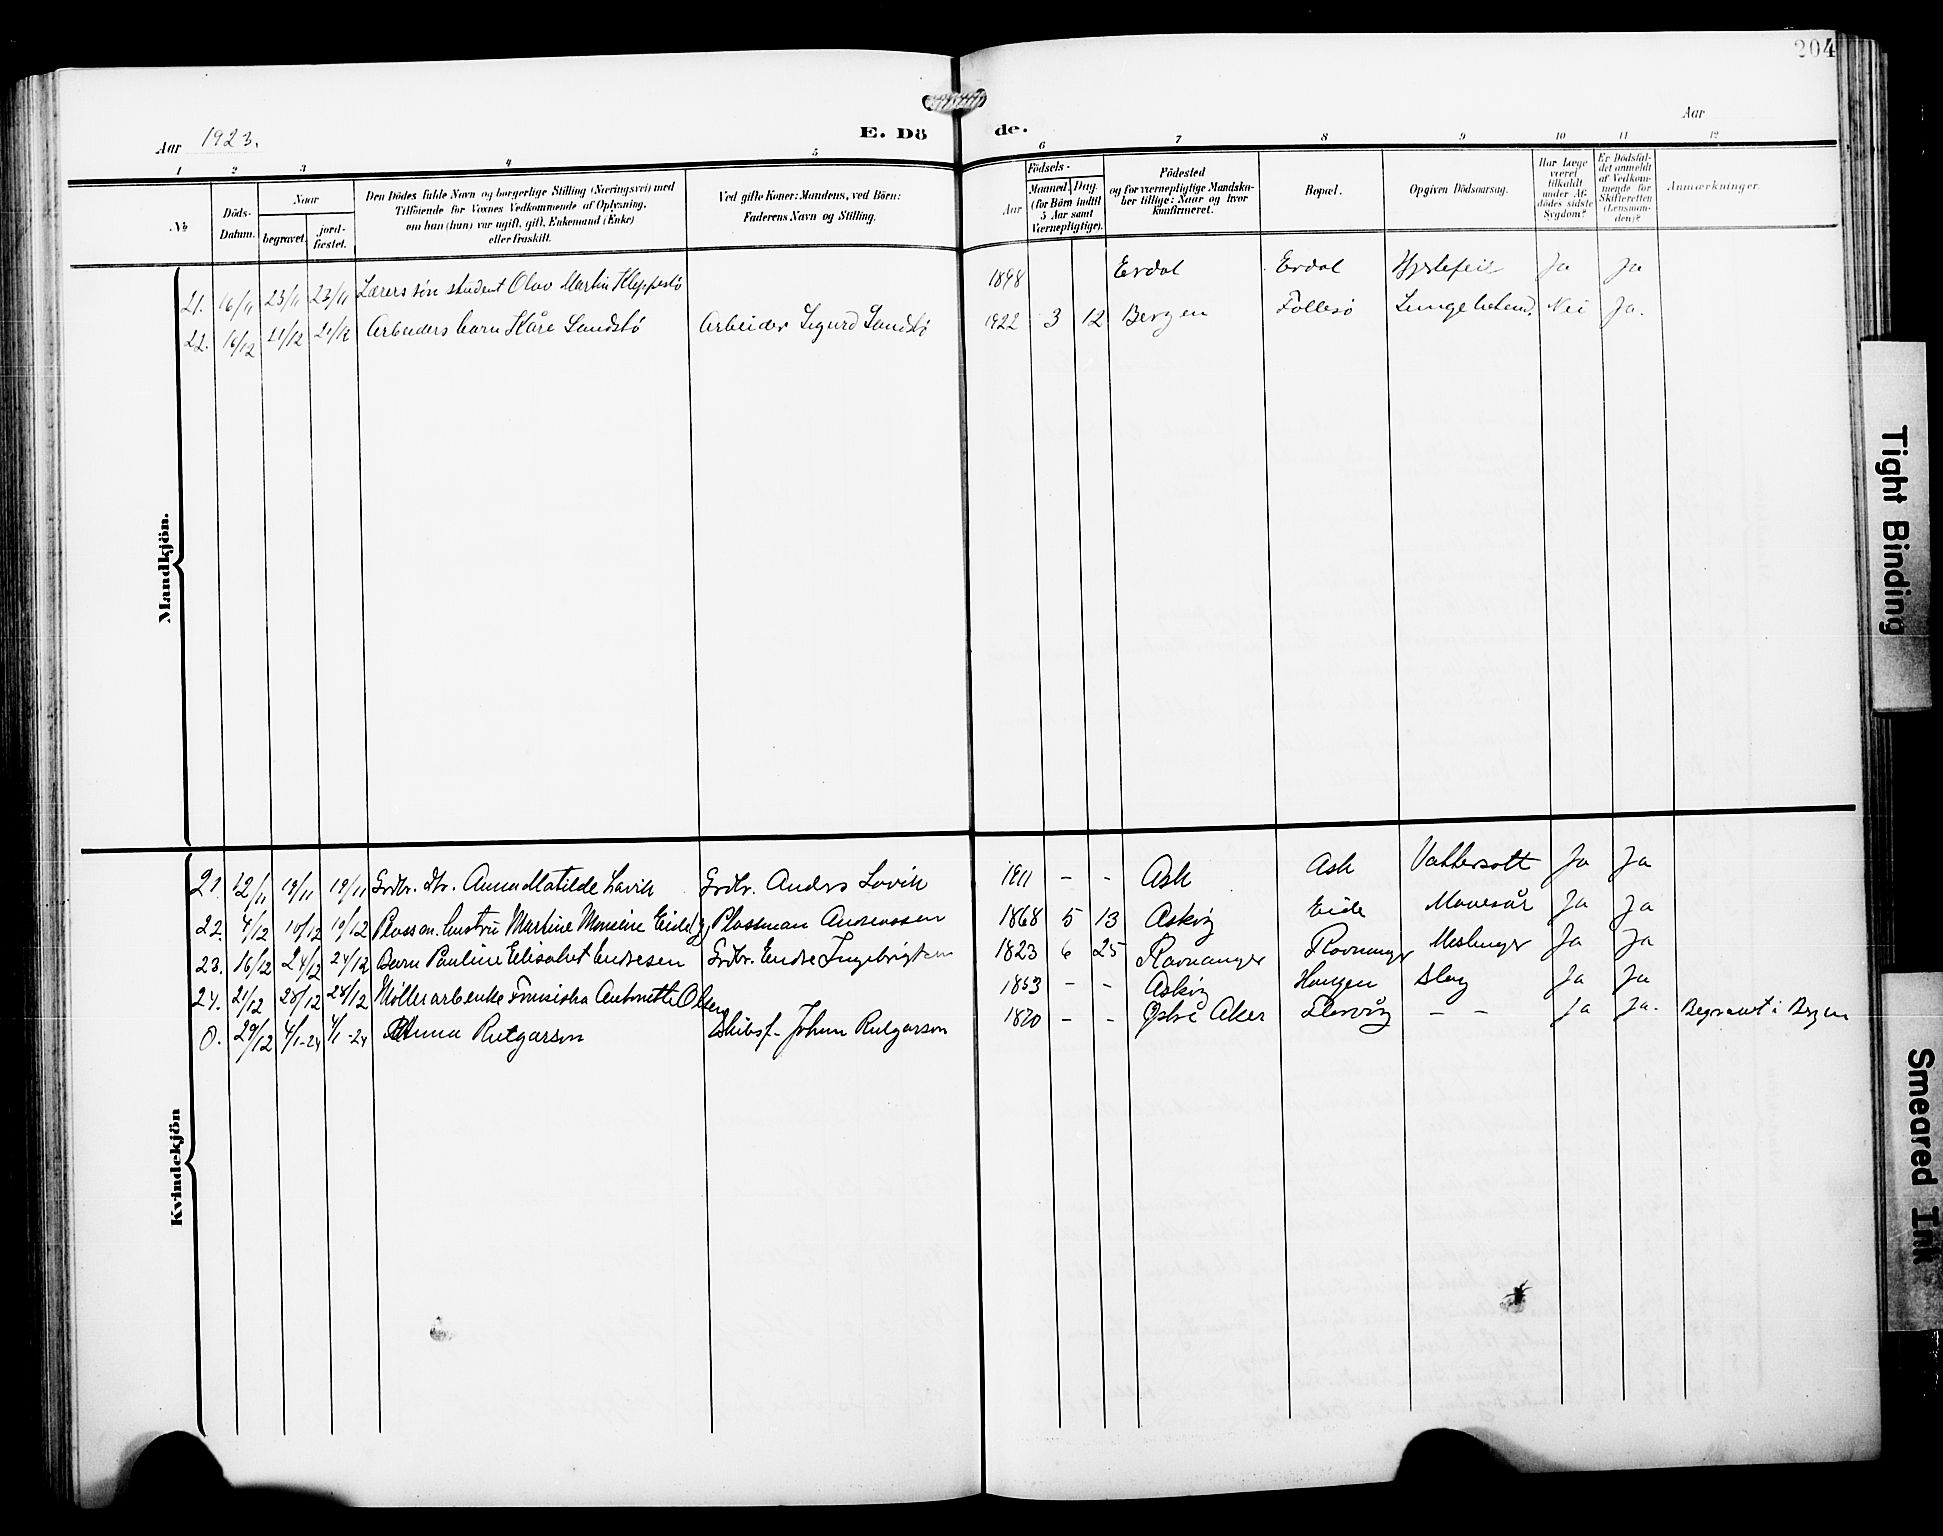 204
Aar 1923.
E. Dö de.
Aar
1 2 3 4 5 6 7 8 9 10 11 12
№
Döds-Datum.
Naar
begravet.
jord-fæstet.
Den Dödes fulde Navn og borgerlige Stilling (Næringsvei) med
Tilföiende for Voxnes Vedkommende af Oplysning,
om han (hun) var ugift, gift, Enkemand (Enke)
eller fraskilt.
Ved gifte Koner: Mandens, ved Börn:
Faderens Navn og Stilling.
Födsels-
Aar
Maaned. Dag.
(for Börn indtil
5 Aar samt
Værnepligtige).
Födested
og for værnepligtige Mandska-
ber tillige: Naar og hvor
konfirmeret.
Bopæl.
Opgiven Dödsaarsag.
Har Læge
været
tilkaldt
under Af-
dödes sidste
Sygdom?
Er Dödsfal-
det anmeldt
af Vedkom-
mende for
Skifteretten
(Lensman-
den)?
Anmærkninger.
Mandkjön.
21. 16/11 23/11 23/11 Lærers søn student Olav Martin Kleppestø 1898 Erdal Erdal Ja Ja
22. 16/12 21/12 21/12 Arbeiders barn Kåre Sandstø Arbeider Sigurd Sandstø 1922 3 12 Bergen Follesø Nei Ja.
Kvindekjön
21. 12/11 19/11 19/11 Grdbr. dtr. Anna Matilde Lavik Grdbr. Anders Lavik 1911 - - Ask Ask Vattersott Ja Ja
22. 4/12 10/12 10/12 Plassm. hustru Martine Monsine Eide Plassman Andreassen 1868 5 13 Askøy Eide Mavesår Ja Ja
23. 16/12 24/12 24/12 Barn Pauline Elisabet Endresen Grdbr. Endre Ingebrigtsen 1823 6 25 Ravnanger Ravnanger Meslinger Ja Ja
24. 21/12 28/12 28/12 Møllerarb enke Fransiska Antonette Olsen 1853 - - Askøy Haugen Slag Ja Ja
0. 29/12 4/1-24 4/1-24 Anna Rutgarson Skibsf. Johan Rutgarson 1870 - - Østre Aker Florvåg - - Ja Ja. Begravet i Bergen
Tight Binding
Smeared Ink